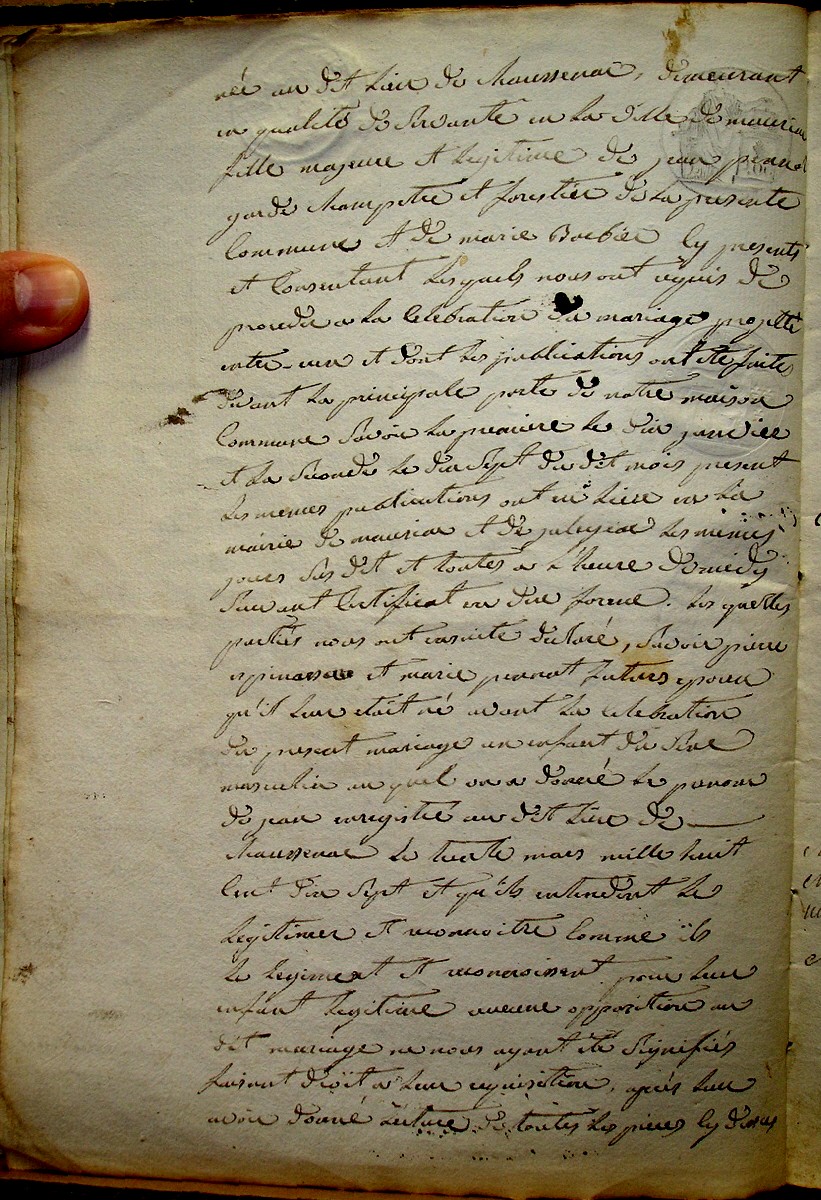 née au dit lieu de Maussenac, demeurant
en qualité de servante en la ville de mauriac
fille majeure et legitime de jean peanot
garde champetre et forestier de la presente
Commune et de marie Barbier Cy presents
et Consentant lesquels nous ont requis de
proceder a la Celebration du mariage projetté
entre-eux et dont les publications ont été faites
devant la principale porte de notre maison
Commune savoir la premiere le dix janvier
et la seconde le dix sept du dit mois present
les memes publications ont eu lieu en la
mairie de mauriac et de les mêmes
jours sus dit et toutes a l'heure de midy
suivant Certificat en due forme. les quelles
parties nous ont ensuite declaré, savoir pierre
espinasse et marie peanot futurs epoux
qu'il leur etait né avant la celebration
du present mariage un enfant du sexe
masculin au quel on a donné le prenom
de jean enregistré au dit lieu de
Maussenac le trente mars mille huit
Cent dix sept et qu'ils entendent le
legitimer et reconnoitre Comme ils
le legiment et reconnoissent pour leur
enfant legitime aucune opposition au
dit mariage ne nous ayant été signifiés
faisant droit a leur requisition, après leur
avoir donné lecture de toutes les pieces Cy dessus